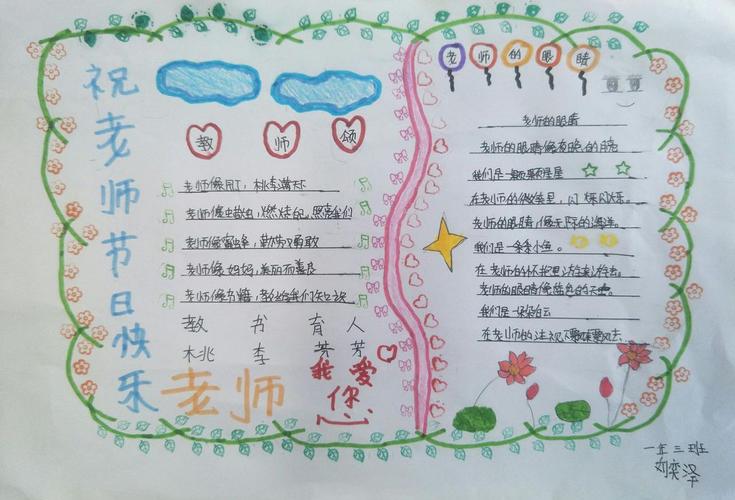 祝老师节日快乐
教师颂
老师像园丁，桃李满天下
老师像蜡烛，燃烧自己，照亮我们
老师像蜜蜂，勤劳又勇敢
老师像妈妈，美丽而善良
老师像书籍，教给我们知识
教书育人
桃李芬芳
老师
我爱你
老师的眼睛
老师的眼睛
老师的眼睛像夜晚的月亮
我们是一颗颗星星
在老师的微笑里，闪烁闪烁。
老师的眼睛，像无际的海洋。
我们是一条条小鱼。
在老师的怀抱里游来游去。
老师的眼睛像蓝色的天空。
我们是一朵朵白云
在老师的注视下飘来飘去。
一年三班
刘奕泽